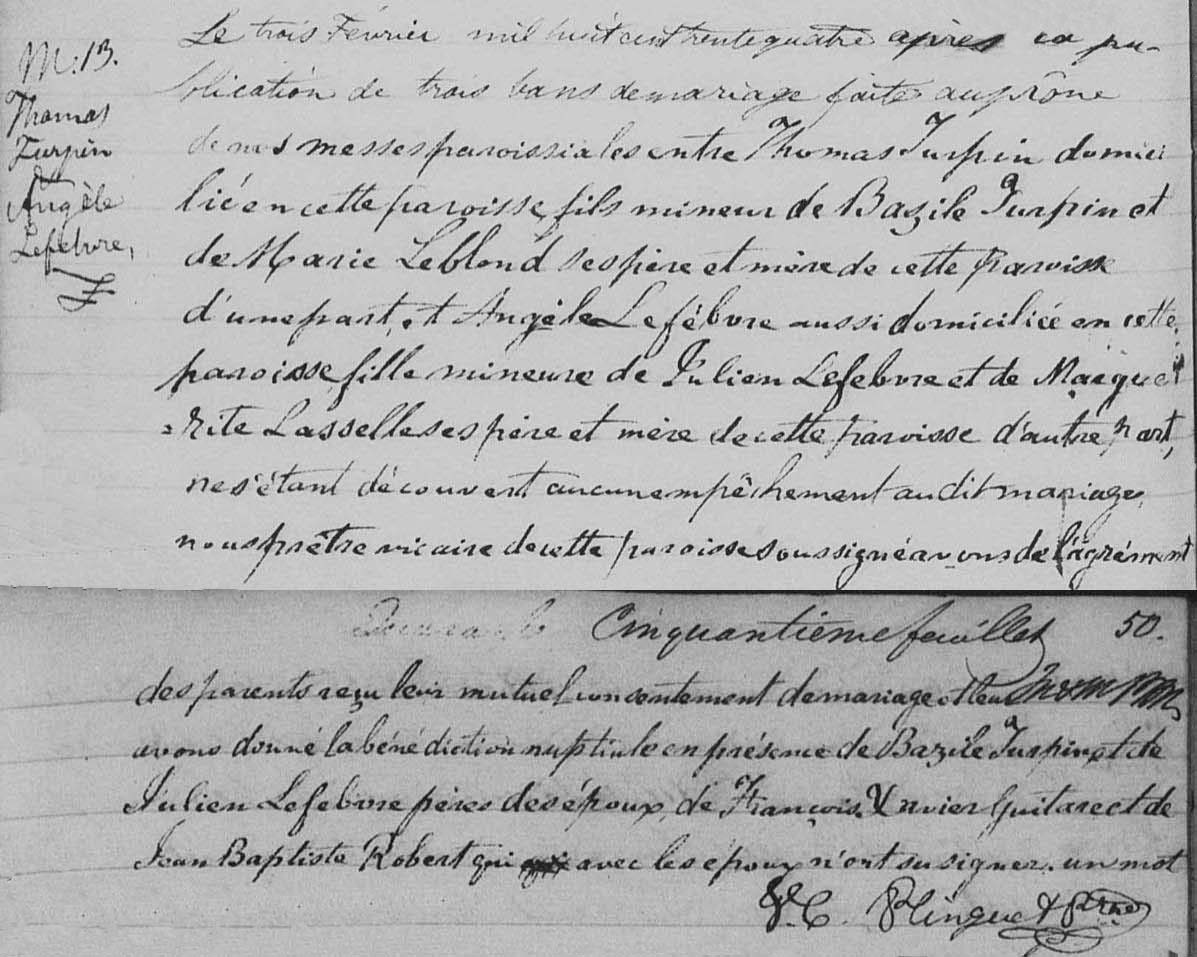 M. 13.
Thomas
Turpin
Angèle
Lefebvre,
Le trois Février mil huit cent trente quatre après la pu-
blication de trois bans de mariage faite au prône
de nos messes paroissiales entre Thomas Turpin domici
lié en cette paroisse, fils mineur de Bazile Turpin et
de Marie Leblond ses père et mère de cette Paroisse
d'une part, et Angèle Lefébvre aussi domiciliée en cette
paroisse fille mineure de Julien Lefebvre et de Margue
=rite Lasselle ses père et mère de cette paroisse d'autre part,
ne s'étant découvert aucun empêchement au dit mariage,
nous prêtre vicaire de cette paroisse soussigné avons de l'agrément
Cinquantième feuillet 50.
des parents reçu leur mutuel consentement de mariage et leur
avons donné la bénédiction nuptiale en présence de Bazile Turpin et de
Julien Lefebvre pères des époux, de François Xavier Guitare et de
Jean Baptiste Robert qui avec les époux n'ont su signer. un mot
V. C. Plinguet Ptre